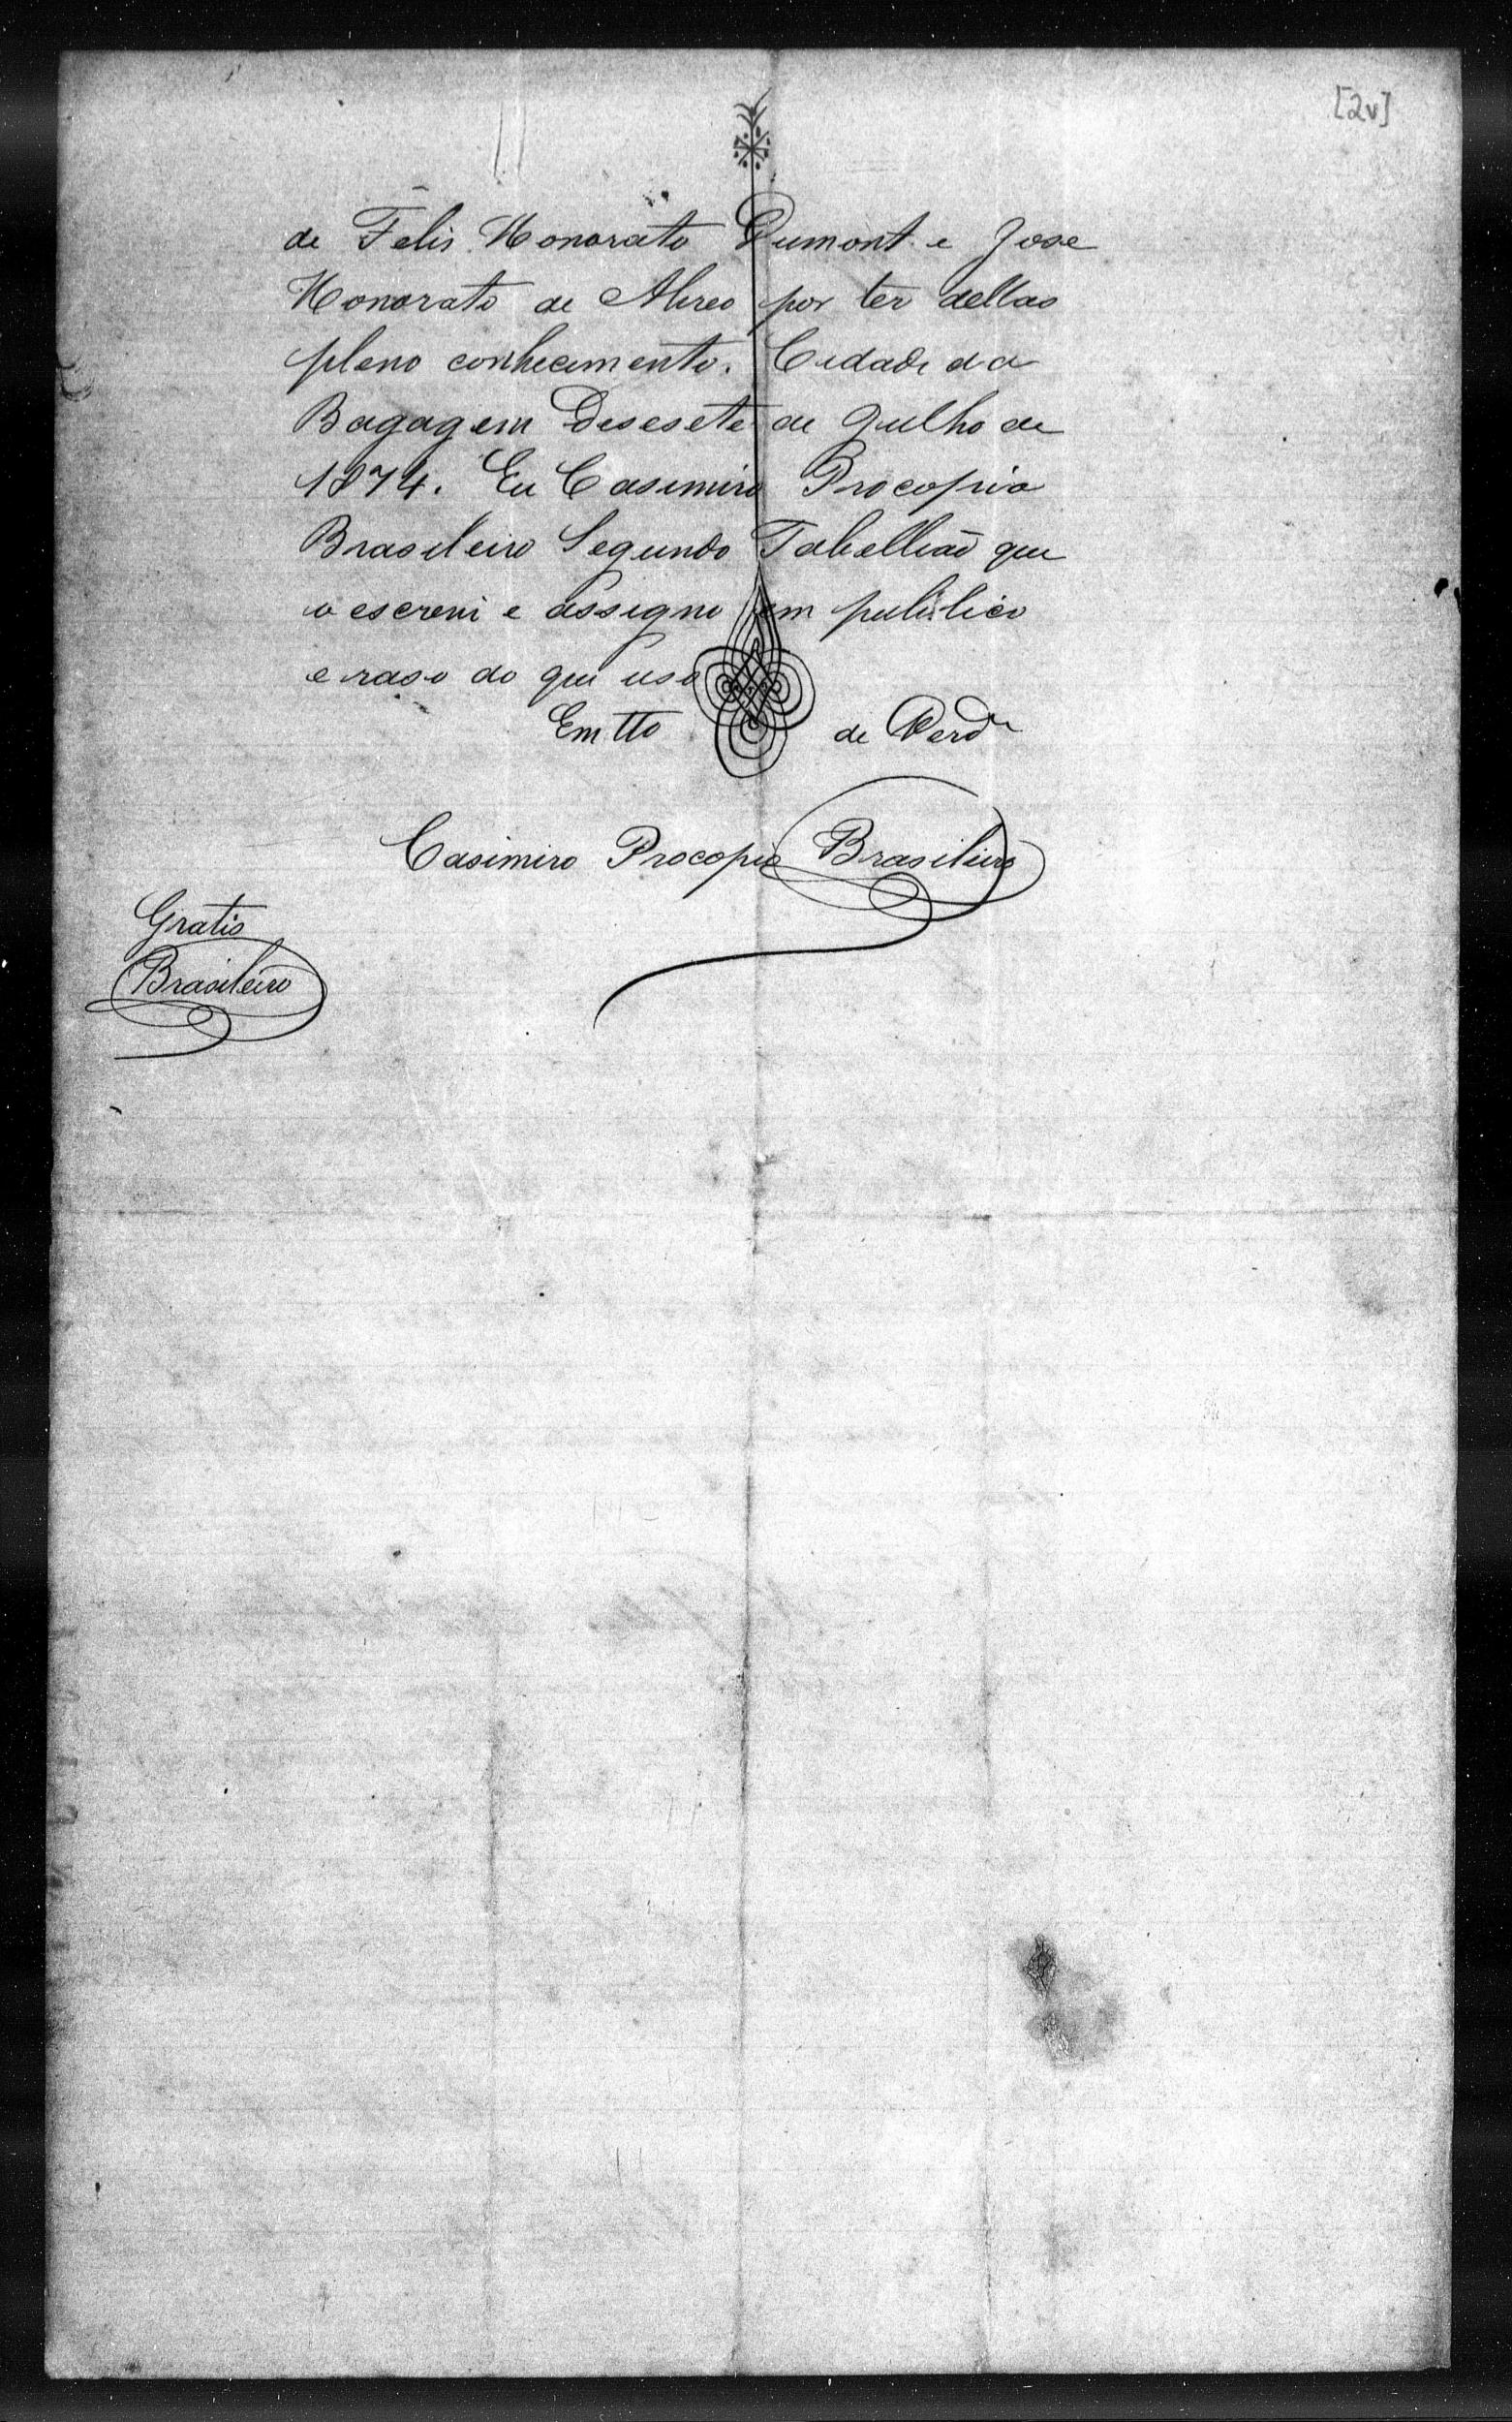 [2v]
de Felis Honorato Dumont e Jose
Honorato de Abreo por ter dellas
pleno conhecimento. Cidade da
Bagagem Desesete de Julho de
1874. Eu Casimiro Procopio
Brasileiro Segundo Tabellião que
o escrevi e assigno em publico
e raso do que uso
Em tto de Verde
Casimiro Procopio Brasileiro
Gratis
Brasileiro